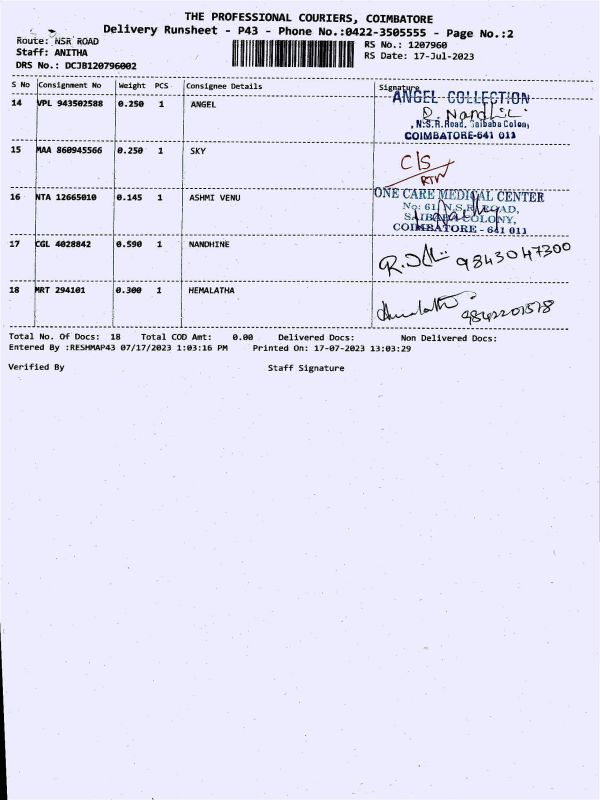 THE PROFESSIONAL COURIERS, COIMBATORE
Delivery Runsheet - P43 - Phone No.:0422-3505555 - Page No.:2
Route: NSR ROAD
RS No.: 1207960
Staff: ANITHA
RS Date: 17-Jul-2023
DRS No.: DCJB120796002
S No Consignment No Weight PCS Consignee Details Signature
14 VPL 943502588 0.250 1 ANGEL
ANGEL COLLECTION
N.S.R.Road, Saibaba Colony
COIMBATORE-641 011
15 MAA 860945566 0.250 1 SKY
C/S
RTN
16 NTA 12665010 0.145 1 ASHMI VENU
ONE CARE MEDICAL CENTER
No: 61, N.S.R. ROAD,
SAIBABA COLONY,
COIMBATORE - 641 011
17 CGL 4028842 0.590 1 NANDHINE
9843047300
18 MRT 294101 0.300 1 HEMALATHA
Hemalatha
9842201518
Total No. Of Docs: 18 Total COD Amt: 0.00 Delivered Docs: Non Delivered Docs:
Entered By :RESHMAP43 07/17/2023 1:03:16 PM Printed On: 17-07-2023 13:03:29
Verified By Staff Signature